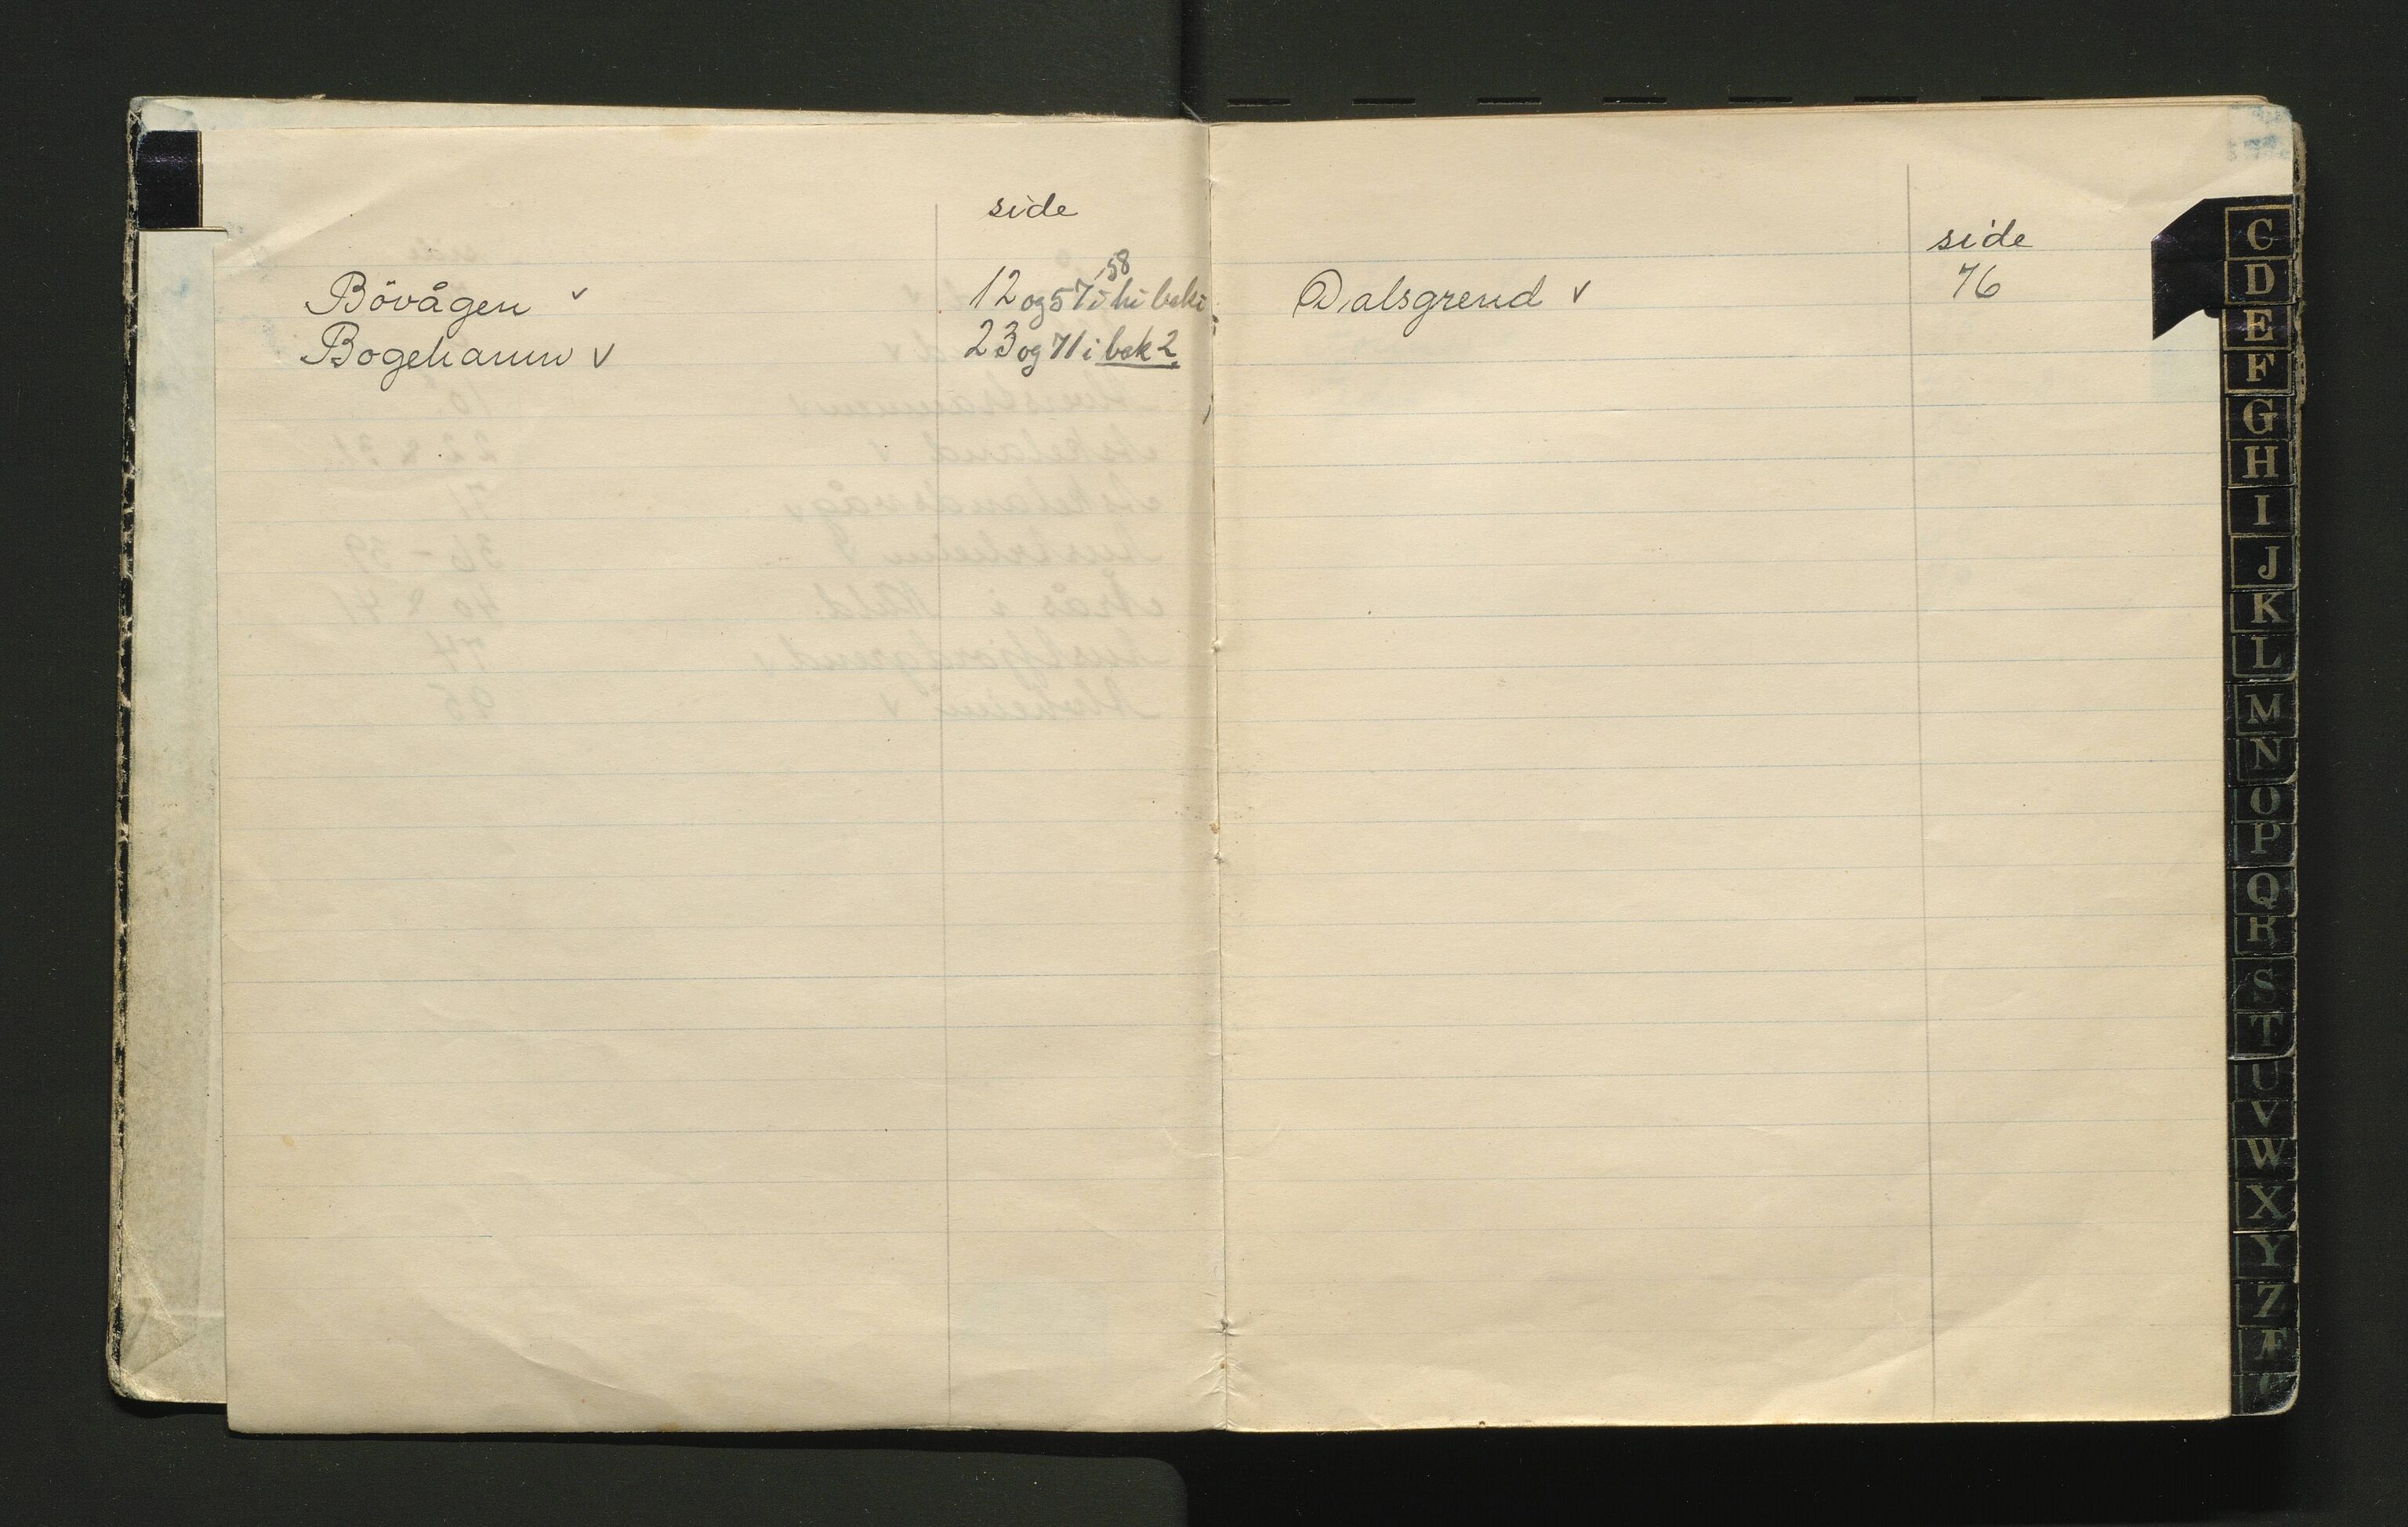 side
Bövågen v 12 og 57 i hi bok i
58
Bogehamn v 23 og 71 i bok 2.
side
Dalsgrend v 76
C
D
E
F
G
H
I
J
K
L
M
N
O
P
Q
R
S
T
U
V
W
X
Y
Z
Æ